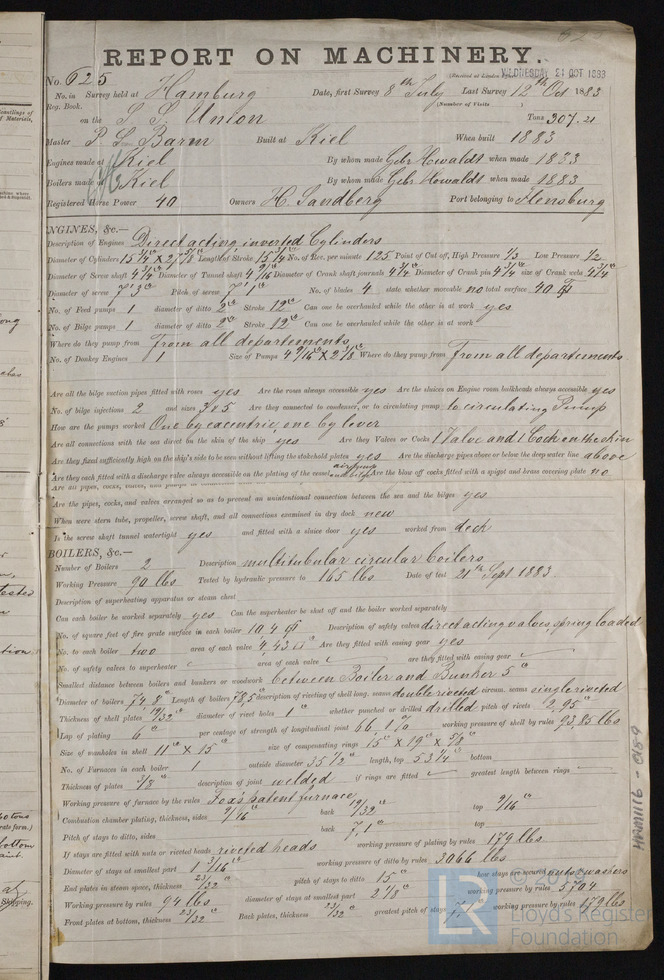 REPORT ON MACHINERY.
No. 625
(Received at Lloyd's WEDNESDAY 31 OCT 1883
No. in Survey held at Hamburg Date, first Survey 8th July Last Survey 12th Oct 1883
Reg. Book. (Number of Visits )
on the S. S. Union Tons 307.21
Master P. L. Barm Built at Kiel When built 1883
Engines made at Kiel By whom made Gebr Howaldt when made 1883
Boilers made at Kiel By whom made Gebr Howaldt when made 1883
Registered Horse Power 40 Owners H. Sandberg Port belonging to Flensburg
ENGINES, &c.—
Description of Engines Direct acting inverted Cylinders
Diameter of Cylinders Length of Stroke 15 3/4 No. of Rev. per minute 125 Point of Cut off, High Pressure 1/3 Low Pressure 1/2
Diameter of Screw shaft 4 3/4 Diameter of Tunnel shaft 4 9/16 Diameter of Crank shaft journals 4 3/4 Diameter of Crank pin 4 3/4 size of Crank webs 4 3/4
Diameter of screw 7' 3" Pitch of screw 7' 1" No. of blades 4 state whether moveable no total surface
No. of Feed pumps 1 diameter of ditto 2" Stroke 12" Can one be overhauled while the other is at work yes
No. of Bilge pumps 1 diameter of ditto 2" Stroke 12" Can one be overhauled while the other is at work
Where do they pump from From all departements
No. of Donkey Engines 1 Size of Pumps Where do they pump from From all departements
Are all the bilge suction pipes fitted with roses yes Are the roses always accessible yes Are the sluices on Engine room bulkheads always accessible yes
No. of bilge injections 2 and sizes 3 x 5 Are they connected to condenser, or to circulating pump to circulating Pump
How are the pumps worked One by excentric, one by lever
Are all connections with the sea direct on the skin of the ship yes Are they Valves or Cocks 1 Valve and 1 Cock on the skin
Are they fixed sufficiently high on the ship's side to be seen without lifting the stokehold plates yes Are the discharge pipes above or below the deep water line above
Are they each fitted with a discharge valve always accessible on the plating of the vessel Are the blow off cocks fitted with a spigot and brass covering plate no
Are the pipes, cocks, and valves arranged so as to prevent an unintentional connection between the sea and the bilges yes
When were stern tube, propeller, screw shaft, and all connections examined in dry dock new
Is the screw shaft tunnel watertight yes and fitted with a sluice door yes worked from deck
BOILERS, &c.—
Number of Boilers 2 Description multitubular circular boilers
Working Pressure 90 lbs Tested by hydraulic pressure to 165 lbs Date of test 21th Sept 1883
Description of superheating apparatus or steam chest
Can each boiler be worked separately yes Can the superheater be shut off and the boiler worked separately
No. of square feet of fire grate surface in each boiler Description of safety valves direct acting valves, spring loaded
No. to each boiler two area of each valve 4,43 Are they fitted with easing gear yes
No. of safety valves to superheater area of each valve are they fitted with easing gear
Smallest distance between boilers and bunkers or woodwork between Boiler and Bunker 5"
Diameter of boilers Length of boilers description of riveting of shell long. seams double riveted circum. seams single riveted
Thickness of shell plates 19/32" diameter of rivet holes 1" whether punched or drilled drilled pitch of rivets 2,95"
Lap of plating 6" per centage of strength of longitudinal joint 66,1% working pressure of shell by rules 93,85 lbs
Size of manholes in shell 11" x 15" size of compensating rings 15" x 19" x 5/8"
No. of Furnaces in each boiler 1 outside diameter 35 1/2" length, top 53 1/4" bottom
Thickness of plates 3/8" description of joint welded if rings are fitted greatest length between rings
Working pressure of furnace by the rules Fox's patent furnace
Combustion chamber plating, thickness, sides 9/16" back 19/32" top 9/16"
Pitch of stays to ditto, sides back 7,1" top
If stays are fitted with nuts or riveted heads riveted heads working pressure of plating by rules 179 lbs
Diameter of stays at smallest part 1 3/16" working pressure of ditto by rules 3066 lbs
End plates in steam space, thickness 23/32" pitch of stays to ditto 15" how stays are secured nuts & washers
Working pressure by rules 94 lbs diameter of stays at smallest part 2 1/8" working pressure by rules 5704
Front plates at bottom, thickness 23/32" Back plates, thickness 23/32" greatest pitch of stays working pressure by rules 179 lbs
HAM1116 - 0189
© 2019
LR
Lloyd's Register
Foundation